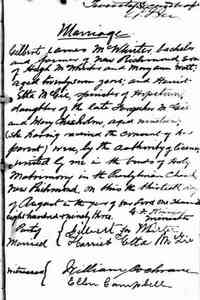 Marriage
Gilbert James McWhirter, bachelor
and farmer of New Richmond, son
of Hugh McWhirter and Mary Ann Watt,
aged twenty seven years, and Harriet
Etta McGie spinster of Hopetown,
daughter of the late
and Mary Chisholm, aged nineteen
(she having received the consent of her
parent) were, by the authority of license,
united by me in the bonds of Holy
Matrimony in the Presbyterian Church
New Richmond, on this the thirtieth day
of August in the year of our Lord one thousand
eight hundred & ninety three.
minister
Party Gilbert McWhirter
Married Harriet Etta McGie
witnesses William Cochrane
Ellen Campbell